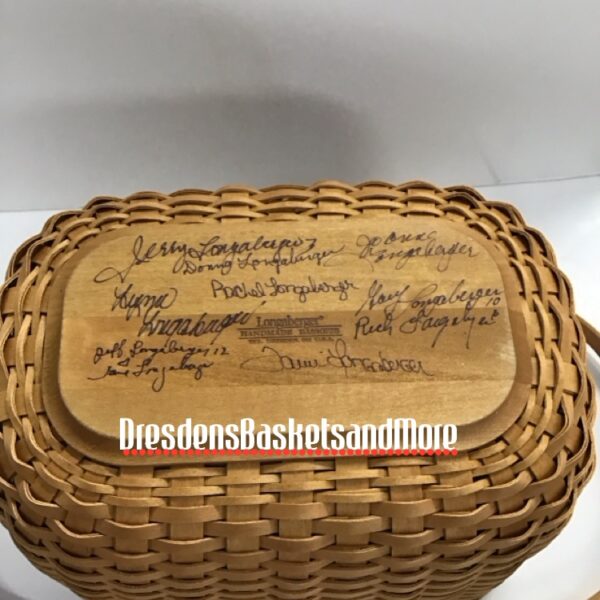 Jerry Longaberger
Donny Longaberger
Jo Anne
Longaberger
Rachel Longaberger
Longaberger
Gary Longaberger 10
Longaberger
HANDMADE BASKETS
DRESDEN, OHIO U.S.A.
Rich
Jeff Longaberger 12
Longaberger
Tami Longaberger
DresdensBasketsandMore